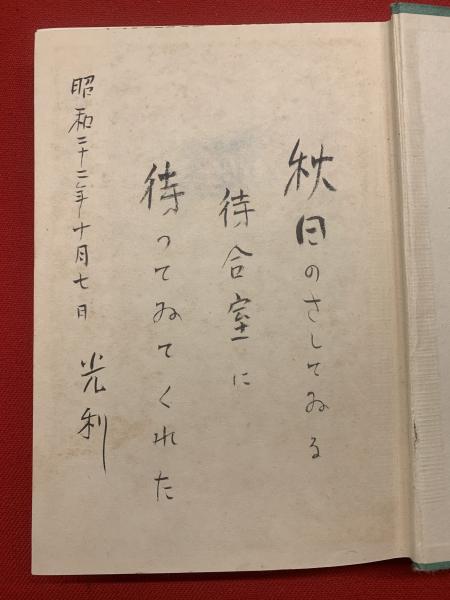 秋日のさしてゐる
待合室に
待つてゐてくれた
昭和二十二年十月七日
光利